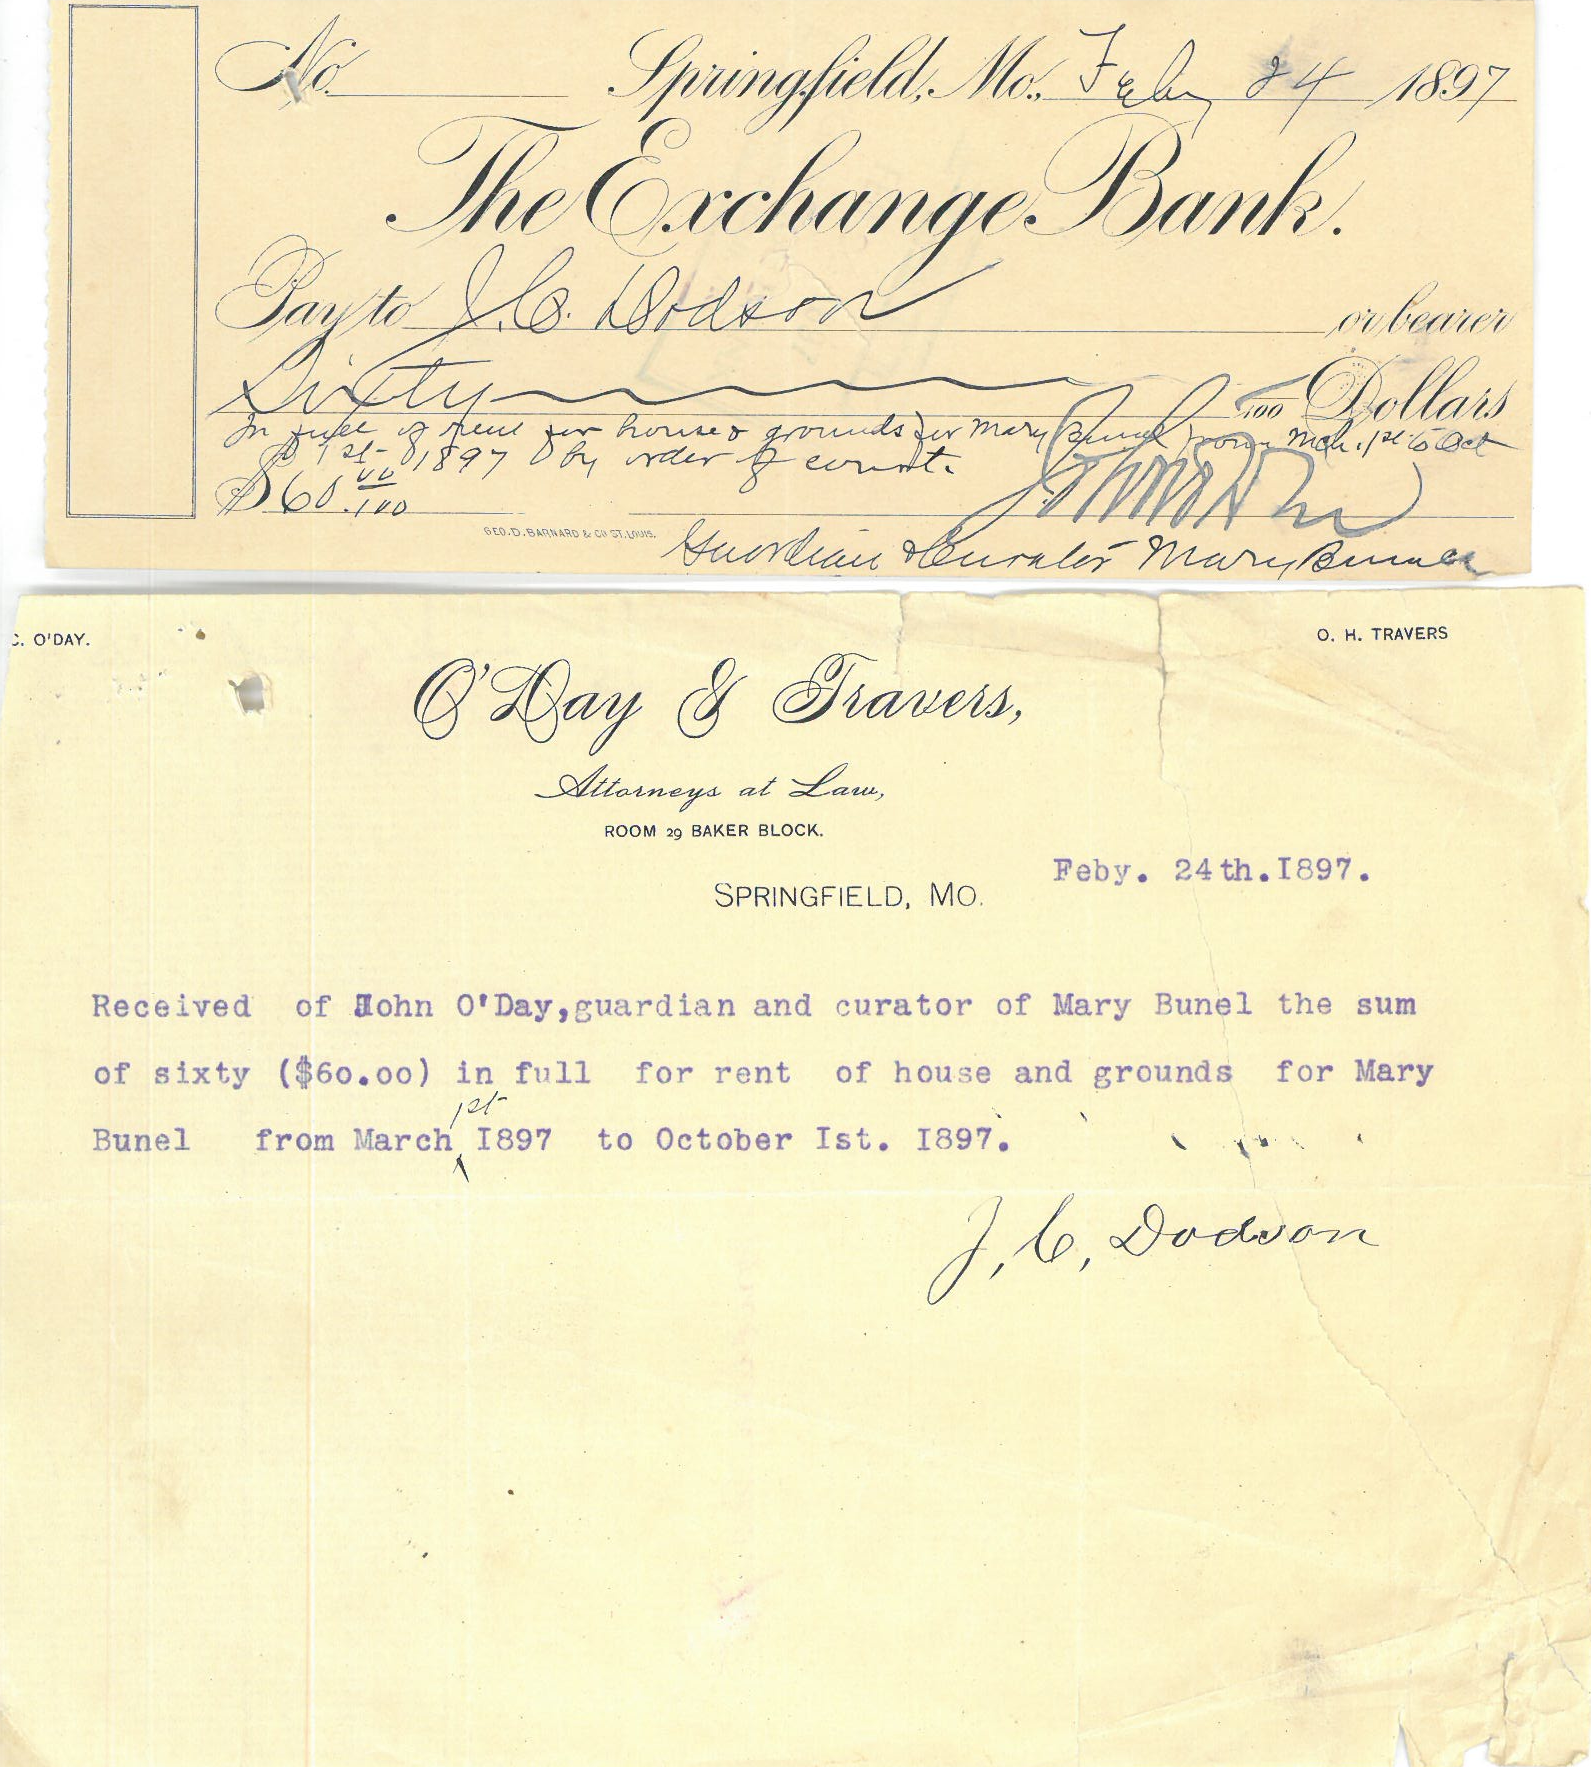 No. Springfield, Mo., Feby 24 1897
The Exchange Bank.
Pay to J. C. Dodson or bearer
Sixty /100 Dollars
In full of rent for house & grounds for Mary Bunel from Mch. 1st to Oct
1st 1897 by order of court.
$60.00/100
GEO. D. BARNARD & CO ST. LOUIS.
Guardian & Curator Mary Bunel
C. O'DAY.
O. H. TRAVERS
O'Day & Travers,
Attorneys at Law,
ROOM 29 BAKER BLOCK.
Feby. 24th.I897.
SPRINGFIELD, MO.
Received of John O'Day,guardian and curator of Mary Bunel the sum
of sixty ($60.00) in full for rent of house and grounds for Mary
1st
Bunel from March I897 to October Ist. I897.
J. C. Dodson